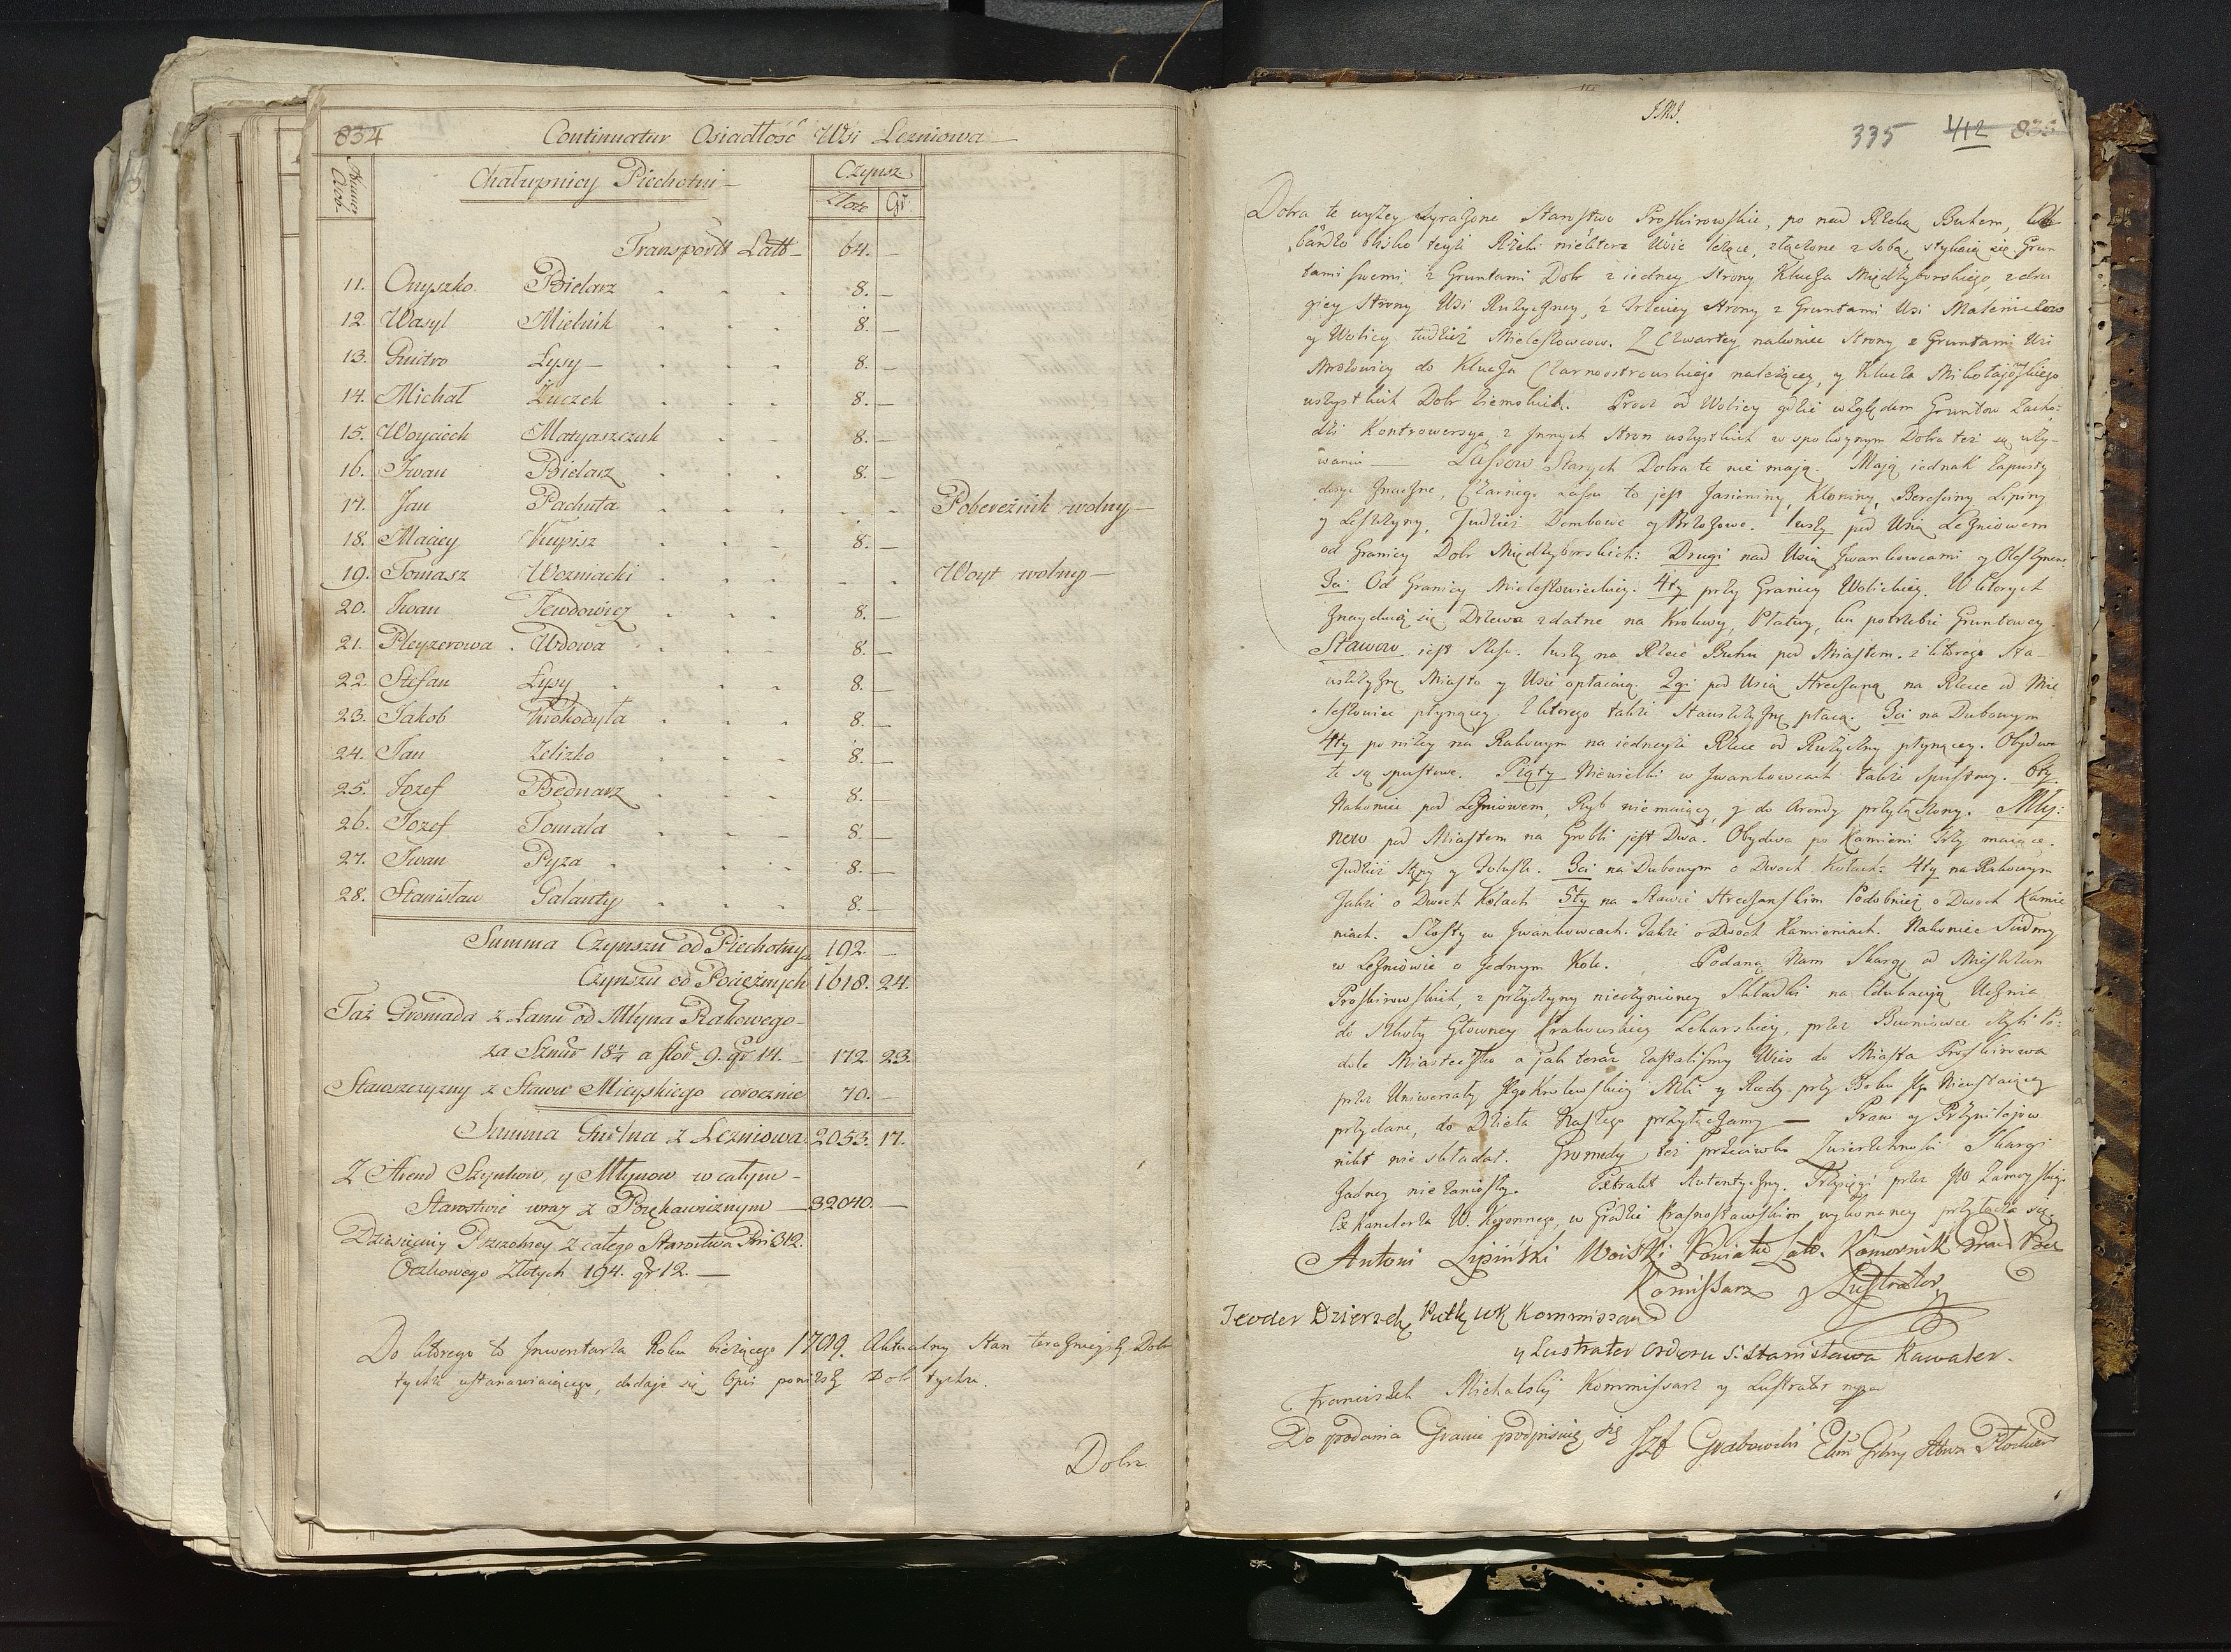 834
Continuatur Osiadłość Wsi Lezniowa
Numer Osob.
Chałupnicy Piechotni
Czynsz
Złote Gr.
Transport Latt 64. —
11. Onyszko Bielarz 8. —
12. Wasyl Mielnik 8. —
13. Gmitro Łysy 8. —
14. Michał Zuczek 8. —
15. Woyciech Matyaszczuk 8. —
16. Iwan Bielarz 8. —
17. Jan Pachuta Pobereżnik wolny —
18. Maciey Kupisz 8. —
19. Tomasz Wozniacki Woyt wolny —
20. Iwan Fewdowicz 8. —
21. Pleyzerowa Wdowa 8. —
22. Stefan Łysy 8. —
23. Jakob Krokodyła 8. —
24. Jan Zelizko 8. —
25. Jozef Bednarz 8. —
26. Jozef Tomala 8. —
27. Iwan Pyza 8. —
28. Stanisław Galanty 8. —
Summa Czynszu od Piechotnych 192. —
Czynszu od Pociężnych 1618. 24.
Taż Gromada z Łanu od Młyna Rakowego
za Sznur 18 1/4 a złot 9. gr 14. 172. 23.
Stawszczyzny z Stawu Mieyskiego corocznie 70. —
Summa Gnélna z Lezniowa 2053. 17.
Z Arend Szynkow, y Młynow w całym
Starostwie wraz z Porękawicznym 32040. —
Dziesięciny Pszczelney z całego Starostwa Pni 312.
Oczkowego Złotych 194. gr 12. —
Do którego to Inwentarza Roku bieżącego 1789. Aktualny Stan teraznieyszy Dobr
tychże ustanawiaiącego, dodaje się Opis poniższy Dobr tychże.
Dobra
335 412 835
Dobra te wyżey wyrażone Starostwo Proskirowskie, po nad Rzeką Buhem,
bardzo blisko teyże Rzeki niektore Wsie leżące, złączone z sobą, stykaią się Grun
tami swemi, z Gruntami Dobr z iedney Strony Klucza Międzyborskiego, z dru
giey Strony Wsi Rużyczney, z trzeciey Strony z Gruntami Wsi Maleniczow
y Wolicy tudzież Mieleszowcow. Z Czwartey nakoniec Strony z Gruntami Wsi
do Klucza Czarnoostrowskiego należącey, y Klucza Mikołajowskiego
wszystkich Dobr Ziemskich. Procz od Wolicy gdzie względem Gruntow Zacho
dzi Kontrowersya, z Innych Stron wszystkich w spokoynym Dobra też są uży
waniu — Lassow Starych Dobra te nie mają. Mają iednak Zapusty
dosyc Znaczne, Czarnego Lassu to jest Jasieniny, Kłoniny, Bereściny Lipiny
y Leszczyny, Tudzież Dembowe y Brzozowe. 1wszy pod Wsią Lezniowem
od Granicy Dobr Międzyborskich. Drugi nad Wsią Iwankowcami y Oleszynem,
3ci Od Granicy Mieleszowieckiey. 4ty przy Granicy Wolickiey. W ktorych
Znayduią się Drzewa zdatne na Krokwy, Płatwy, ku potrzebie Gruntowey.
Stawow iest Szesc. 1wszy na Rzece Buhu pod Miastem. z ktorego Sta
wszczyznę Miasto y Wsie opłacaią. 2gi pod Wsią Hreczaną na Rzece od Mie
leszowiec płynącey. Z ktorego także Stawszczyznę płacą. 3ci na Dubowym
4ty poniżey na Rakowym na iedneyże Rzece od Rużyczny płynącey. Obydwa
te są spustowe. Piąty Niewielki w Iwankowcach także Spustowy. 6ty
Nakoniec pod Lezniowem, Ryb nie maiący, y do Arendy przyłączony. Mły:
now pod Miastem na Grobli jest Dwa. Obydwa po Kamieni Trzy maiące.
Tudzież Stępy y Folusz. 3ci na Dubowym o Dwoch Kołach. 4ty na Rakowym
Także o Dwoch Kołach 5ty na Stawie Hreczanskim Podobnież o Dwoch Kamie
niach. Szosty w Iwankowcach. Także o Dwoch Kamieniach. Nakoniec Siodmy
w Lezniowie o Jednym Kole. Podaną Nam Skargę od Mieszczan
Proskirowskich, z przyczyny nieczynioney Składki na Edukacyią Ucznia
do Szkoły Głowney Krakowskiey Lekarskiey, przez Buwniowce czyli Po:
dole Miasteczko a jak teraz Zastalismy Wies do Miasta Proskirowa
przez Uniwersały Jego Krolewskiey Mci y Rady przy Boku Jego Nieustaiącey
przydane, do Dzieła Naszego przyłączamy — Praw y Przywilejow
nikt nie składał. Gromady też przeciwko Zwierzchności Skargi
Żadney nie zaniosły. Extrakt Autentyczny Przysięgi przez JW Zamoyskiego
Ex Kanclerza W. Koronnego, w Grodzie Krasnostawskim wykonaney przyłącza się.
Antoni Lipiński Woiski Powiatu Lat. Komornik Gran
Komissarz y Lustrator
Teodor Dzierzek Kommissarz
y Lustrator Orderu S: Stanisława Kawaler.
Franciszek Michalski Kommissarz y Lustrator mpp
Do podania Granic podpisuię się Jzf Grabowski